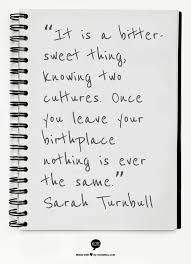 "It is a bitter-
sweet thing,
knowing two
cultures. Once
you leave your
birthplace
nothing is ever
the same."
Sarah Turnbull